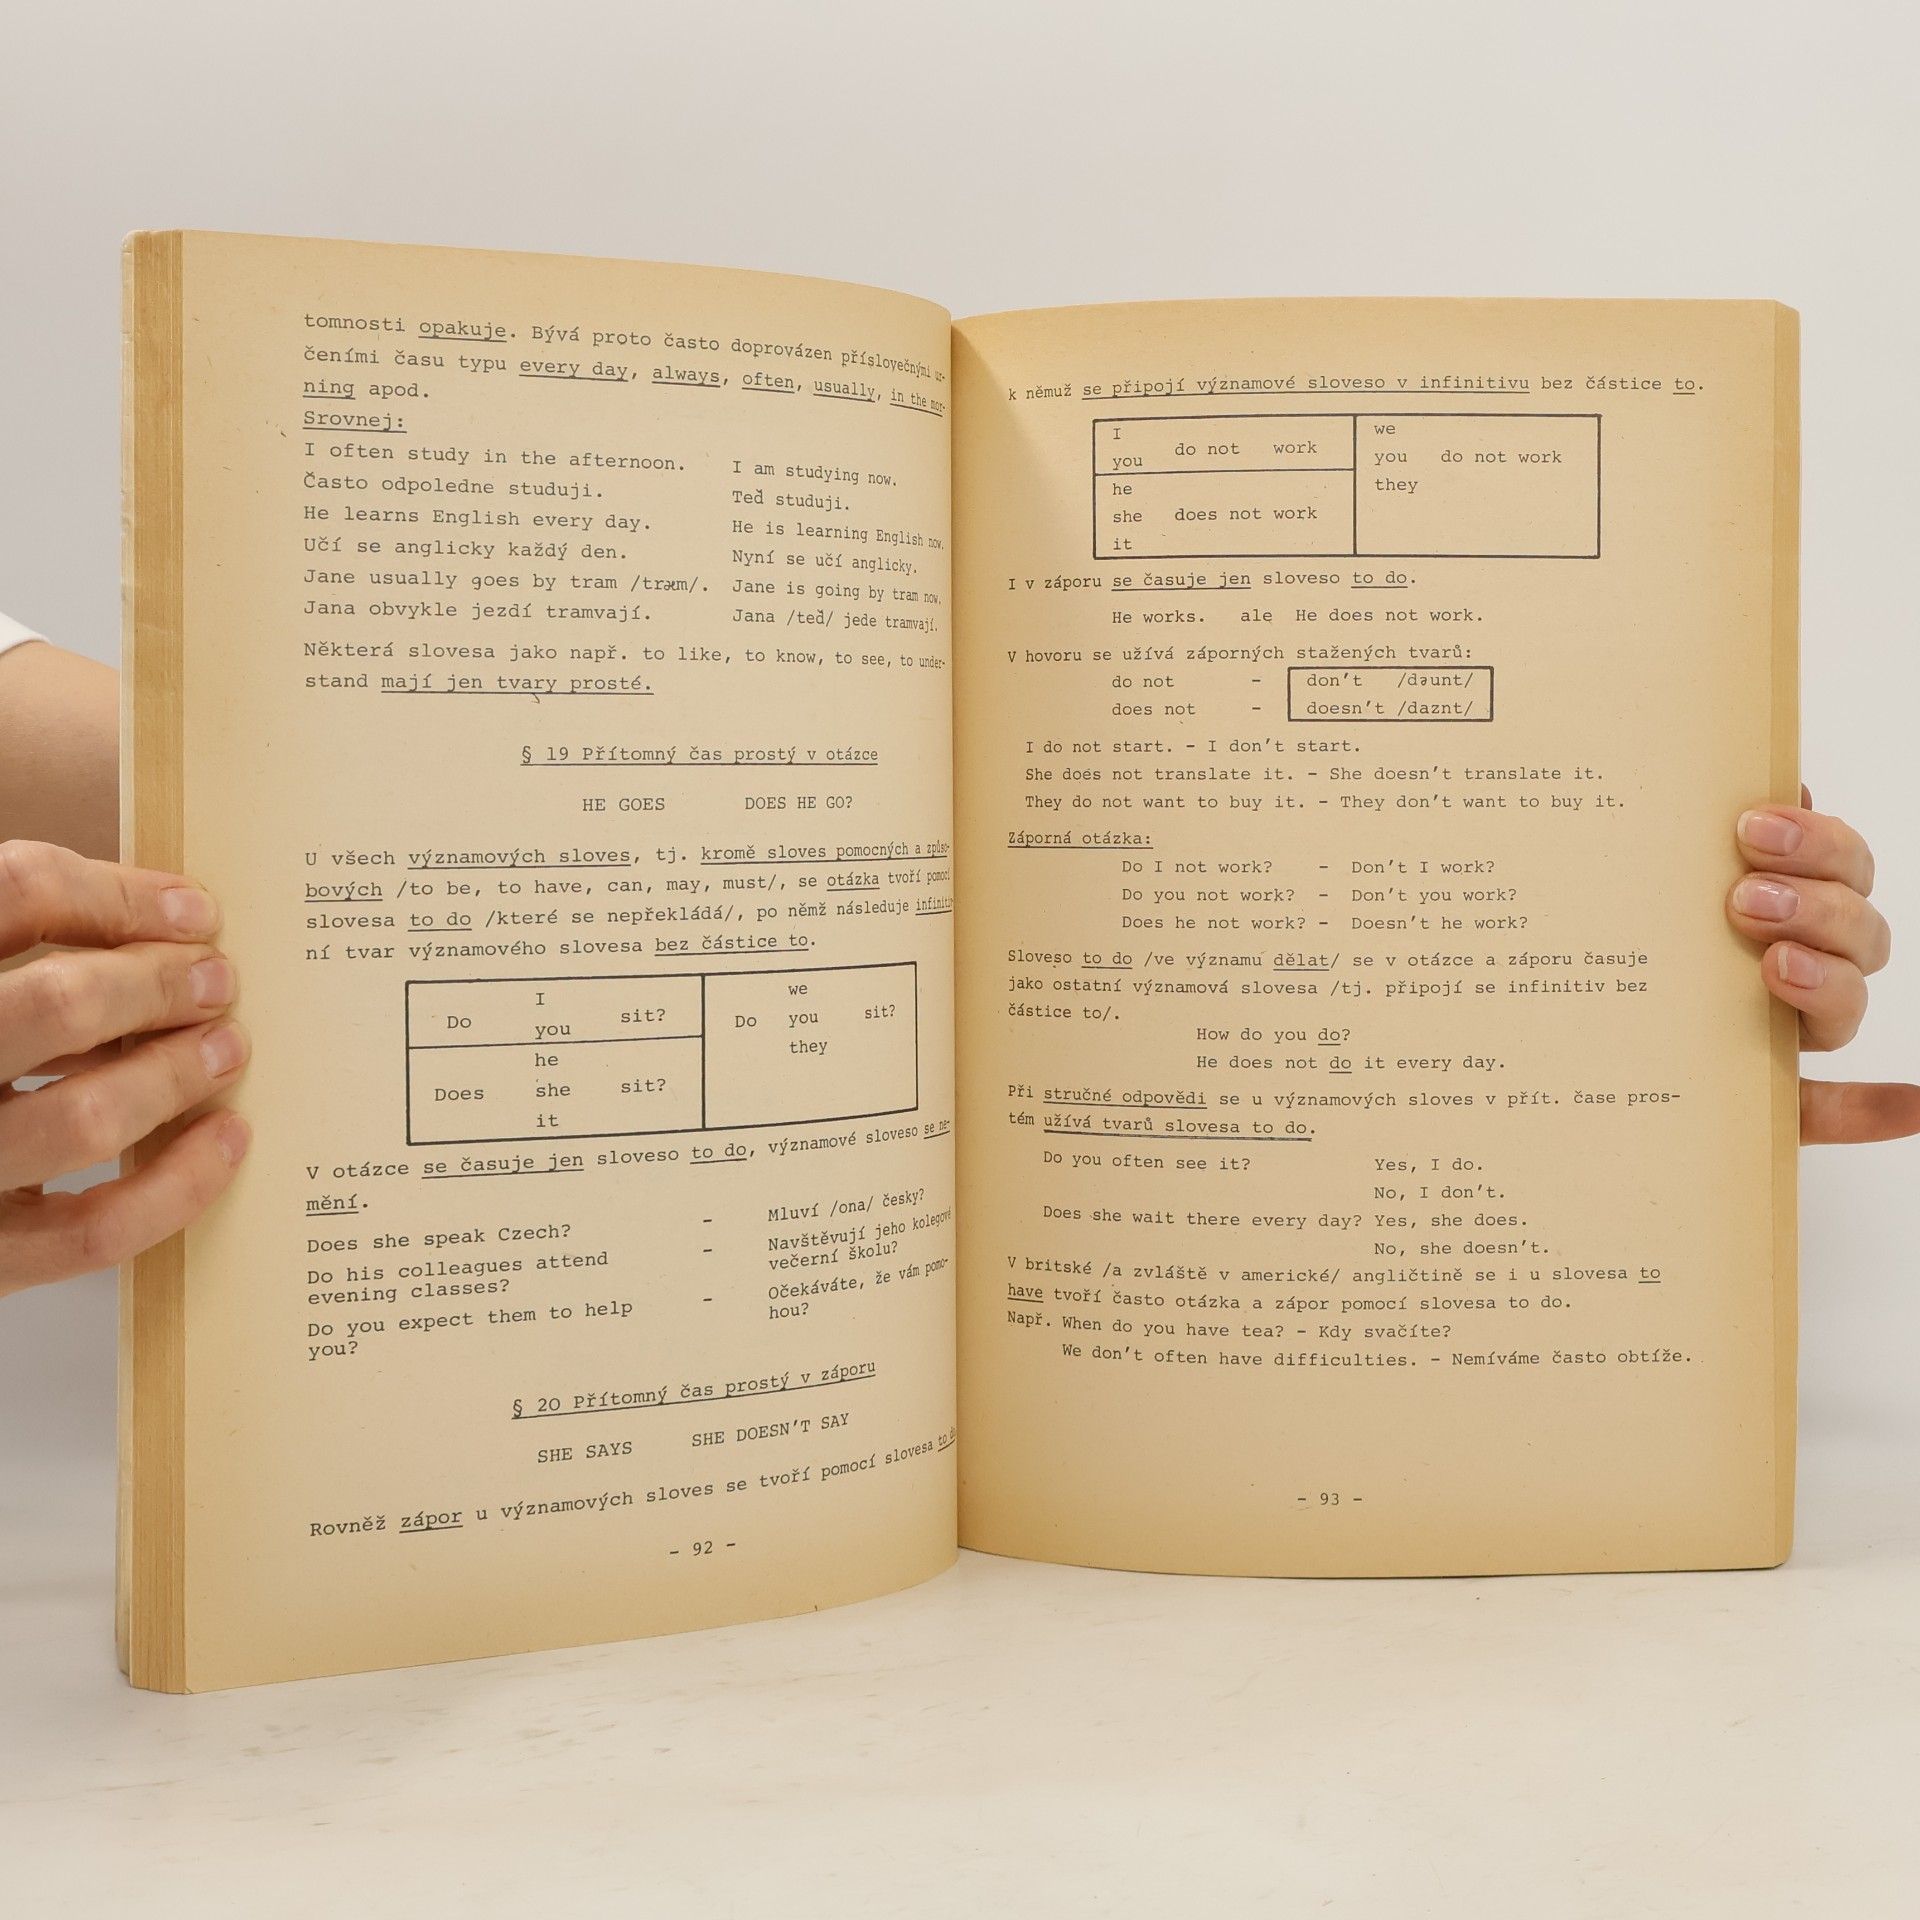 tomnosti opakuje. Bývá proto často doprovázen příslovečnými ur-
čeními času typu every day, always, often, usually, in the mor-
ning apod.
Srovnej:
I often study in the afternoon. I am studying now.
Často odpoledne studuji. Teď studuji.
He learns English every day. He is learning English now.
Učí se anglicky každý den. Nyní se učí anglicky.
Jane usually goes by tram /træm/. Jane is going by tram now.
Jana obvykle jezdí tramvají. Jana /teď/ jede tramvají.
Některá slovesa jako např. to like, to know, to see, to under-
stand mají jen tvary prosté.
§ 19 Přítomný čas prostý v otázce
HE GOES DOES HE GO?
U všech významových sloves, tj. kromě sloves pomocných a způso-
bových /to be, to have, can, may, must/, se otázka tvoří pomocí
slovesa to do /které se nepřekládá/, po němž následuje infinitiv
ní tvar významového slovesa bez částice to.
I we
Do you sit? Do you sit?
he they
Does she sit?
it
V otázce se časuje jen sloveso to do, významové sloveso se ne-
mění.
Does she speak Czech? - Mluví /ona/ česky?
Do his colleagues attend - Navštěvují jeho kolegové
evening classes? večerní školu?
Do you expect them to help - Očekáváte, že vám pomo-
you? hou?
§ 20 Přítomný čas prostý v záporu
SHE SAYS SHE DOESN'T SAY
Rovněž zápor u významových sloves se tvoří pomocí slovesa to do
- 92 -
k němuž se připojí významové sloveso v infinitivu bez částice to.
I we
you do not work you do not work
he they
she does not work
it
I v záporu se časuje jen sloveso to do.
He works. ale He does not work.
V hovoru se užívá záporných stažených tvarů:
do not - don't /dəunt/
does not - doesn't /daznt/
I do not start. - I don't start.
She does not translate it. - She doesn't translate it.
They do not want to buy it. - They don't want to buy it.
Záporná otázka:
Do I not work? - Don't I work?
Do you not work? - Don't you work?
Does he not work? - Doesn't he work?
Sloveso to do /ve významu dělat/ se v otázce a záporu časuje
jako ostatní významová slovesa /tj. připojí se infinitiv bez
částice to/.
How do you do?
He does not do it every day.
Při stručné odpovědi se u významových sloves v přít. čase pros-
tém užívá tvarů slovesa to do.
Do you often see it? Yes, I do.
No, I don't.
Does she wait there every day? Yes, she does.
No, she doesn't.
V britské /a zvláště v americké/ angličtině se i u slovesa to
have tvoří často otázka a zápor pomocí slovesa to do.
Např. When do you have tea? - Kdy svačíte?
We don't often have difficulties. - Nemíváme často obtíže.
- 93 -